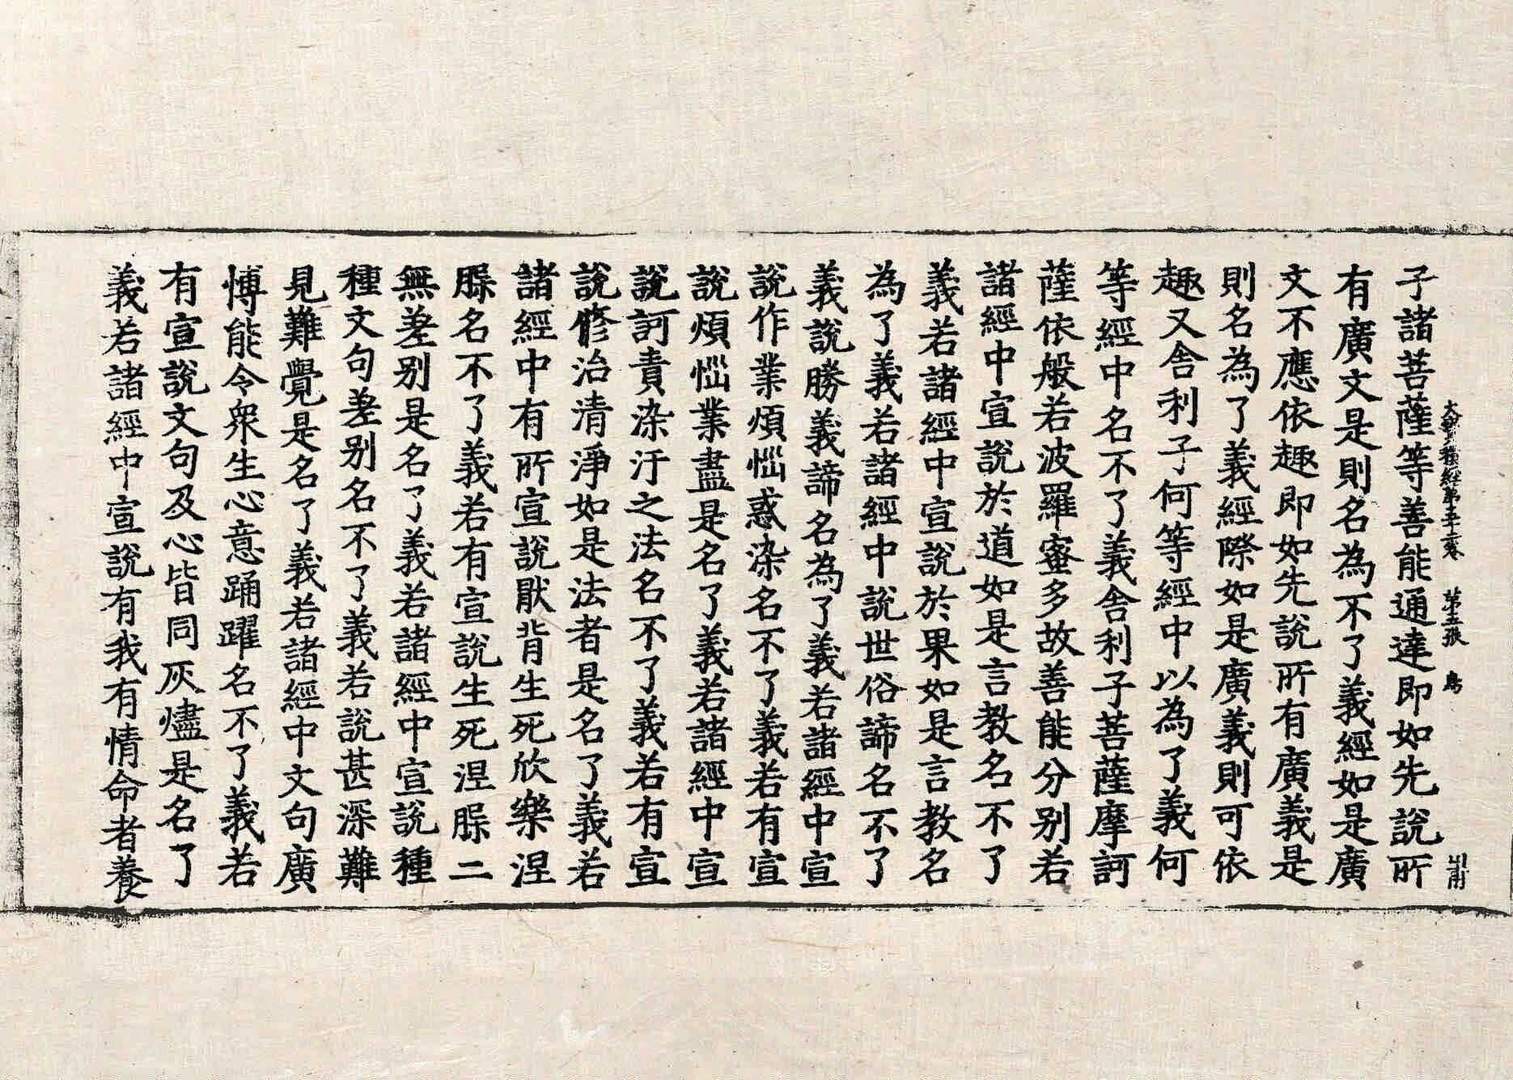 大寶積經第五十二卷 第五張 鳥
子諸菩薩等善能通達即如先說所
有廣文是則名為不了義經如是廣
文不應依趣即如先說所有廣義是
則名為了義經際如是廣義則可依
趣又舍利子何等經中以為了義何
等經中名不了義舍利子菩薩摩訶
薩依般若波羅蜜多故善能分別若
諸經中宣說於道如是言教名不了
義若諸經中宣說於果如是言教名
為了義若諸經中說世俗諦名不了
義說勝義諦名為了義若諸經中宣
說作業煩惱惑染名不了義若有宣
說煩惱業盡是名了義若諸經中宣
說訶責染汙之法名不了義若有宣
說修治清淨如是法者是名了義若
諸經中有所宣說厭背生死欣樂涅
槃名不了義若有宣說生死涅槃二
無差別是名了義若諸經中宣說種
種文句差別名不了義若說甚深難
見難覺是名了義若諸經中文句廣
博能令眾生心意踊躍名不了義若
有宣說文句及心皆同灰燼是名了
義若諸經中宣說有我有情命者養